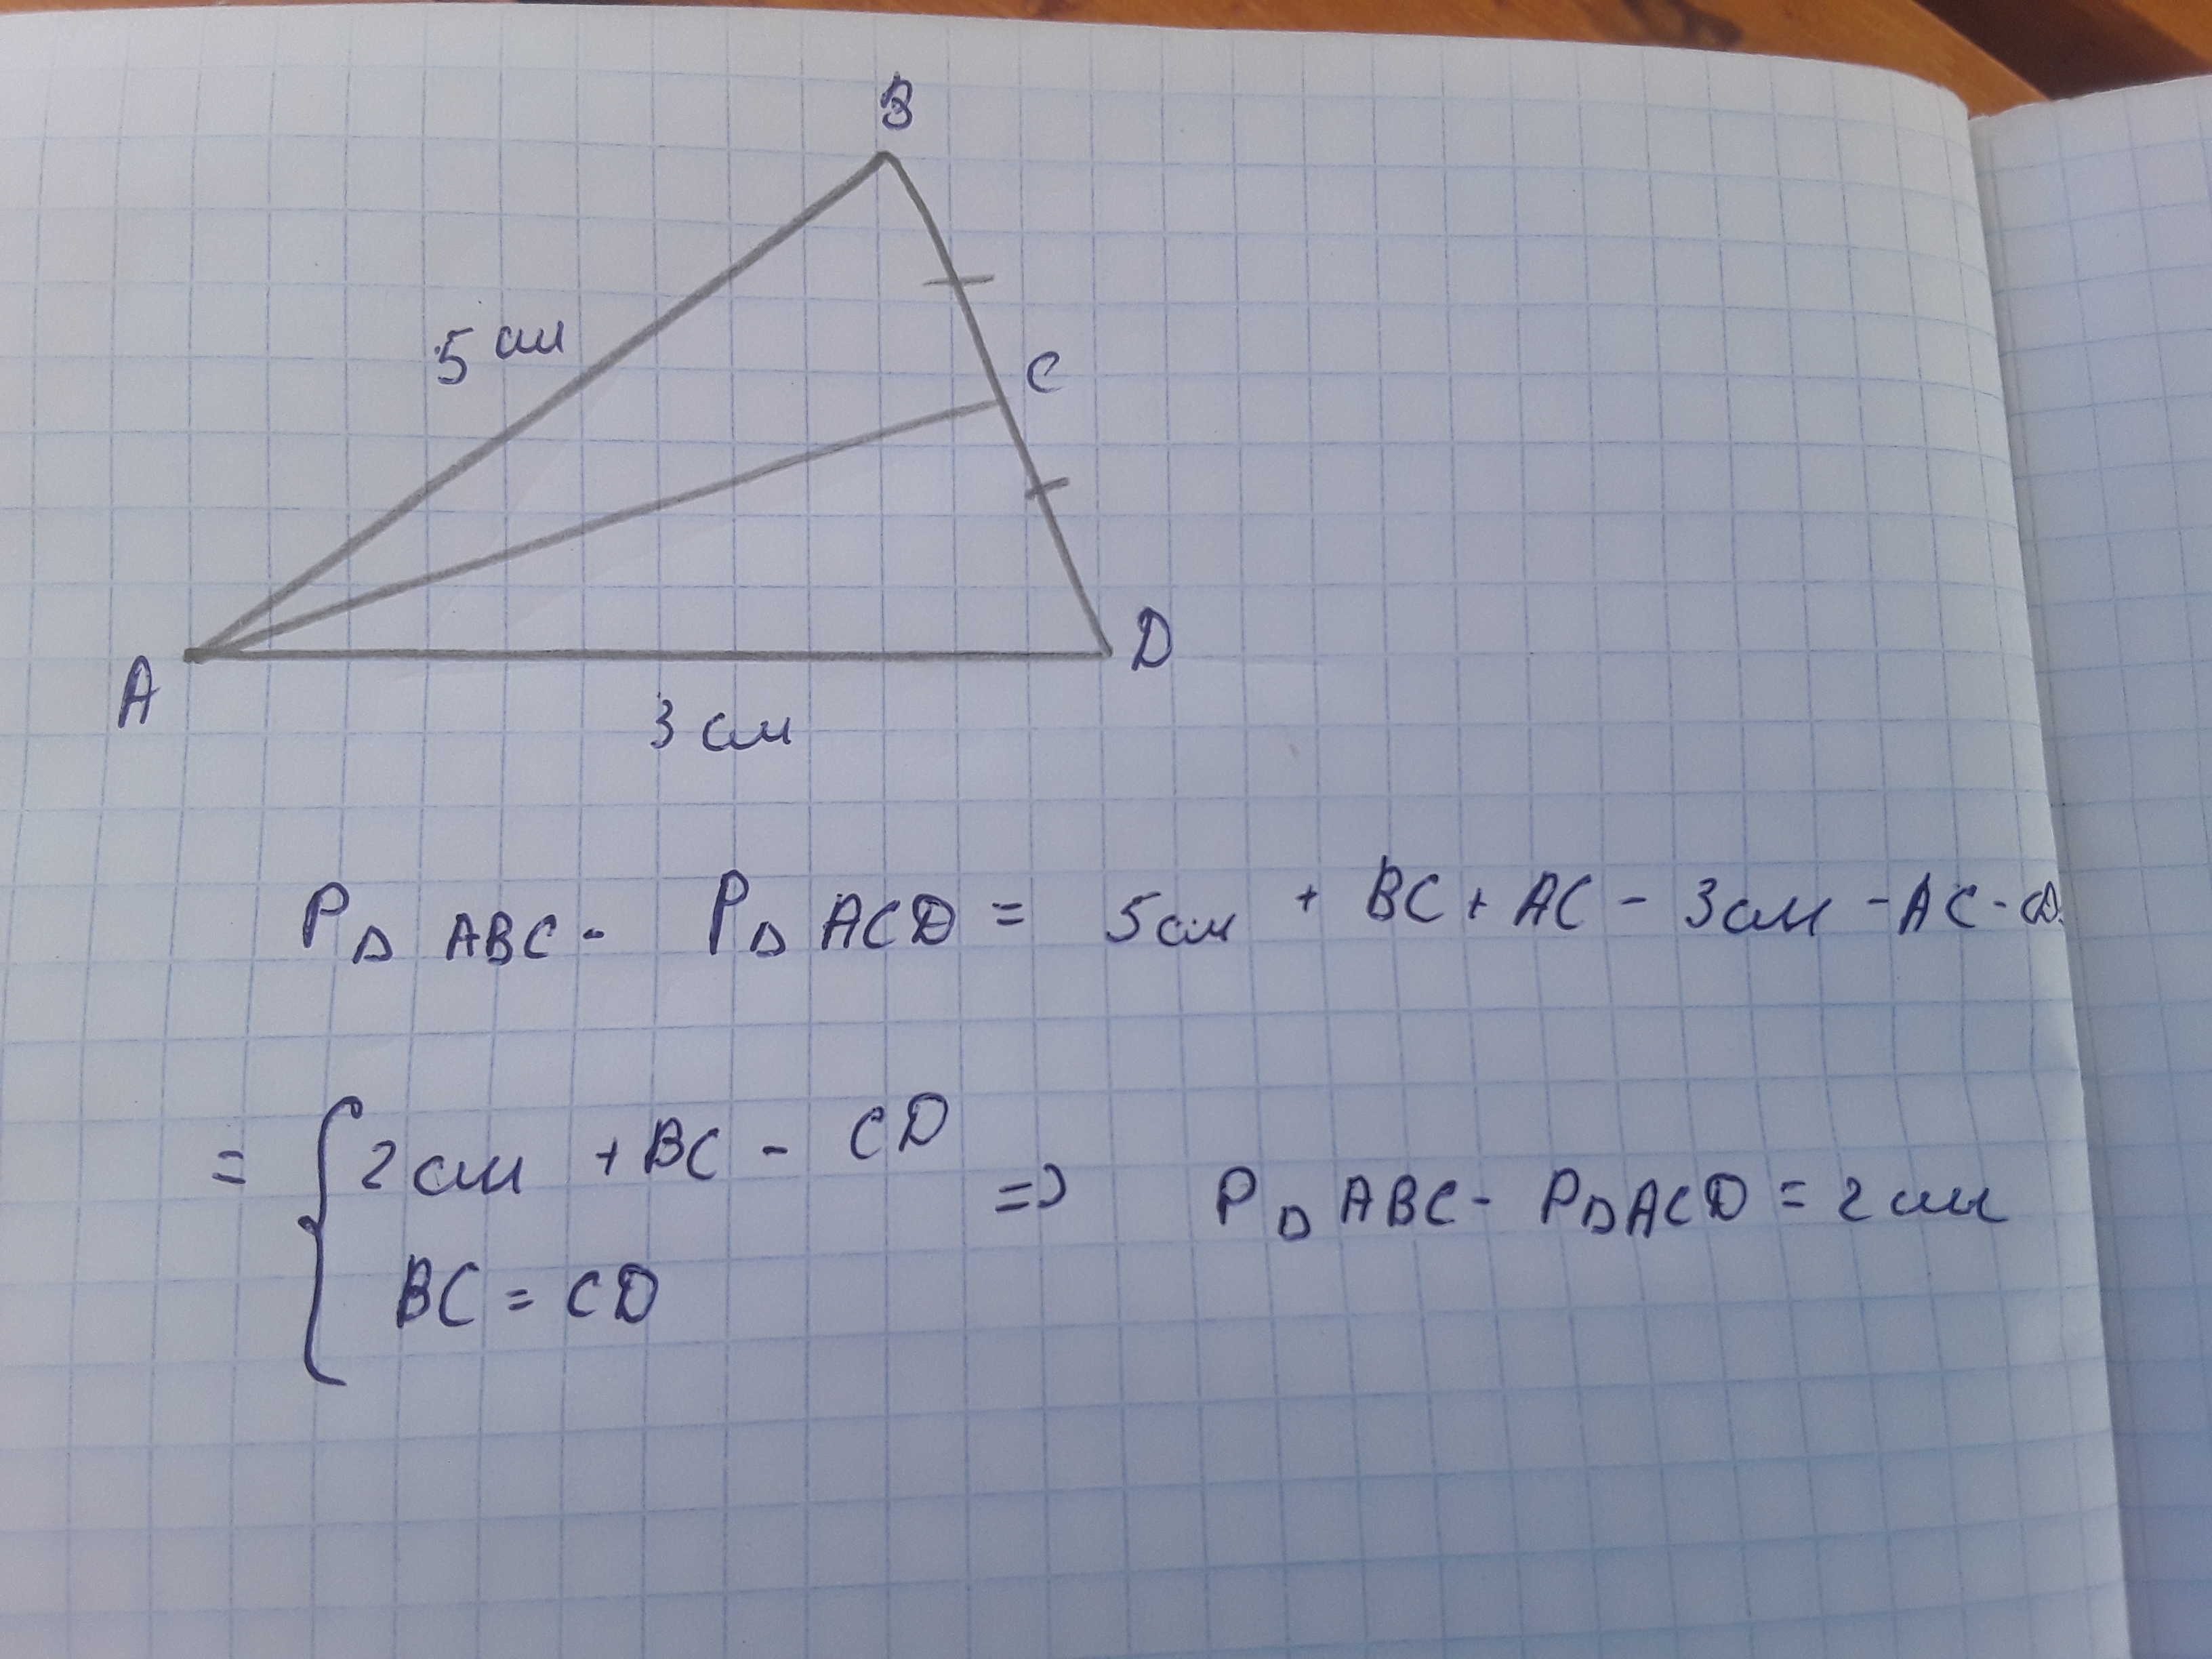 B
5 см
C
A
D
3 см
P∆ ABC - P∆ ACD = 5см + BC + AC - 3см - AC - CD
= { 2 см + BC - CD
BC = CD
=> P∆ ABC - P∆ ACD = 2 см